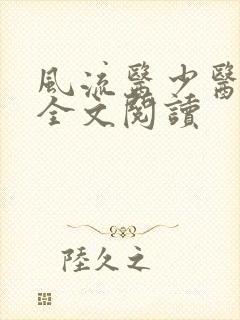 風流醫少醫
全文閱讀
陸久之